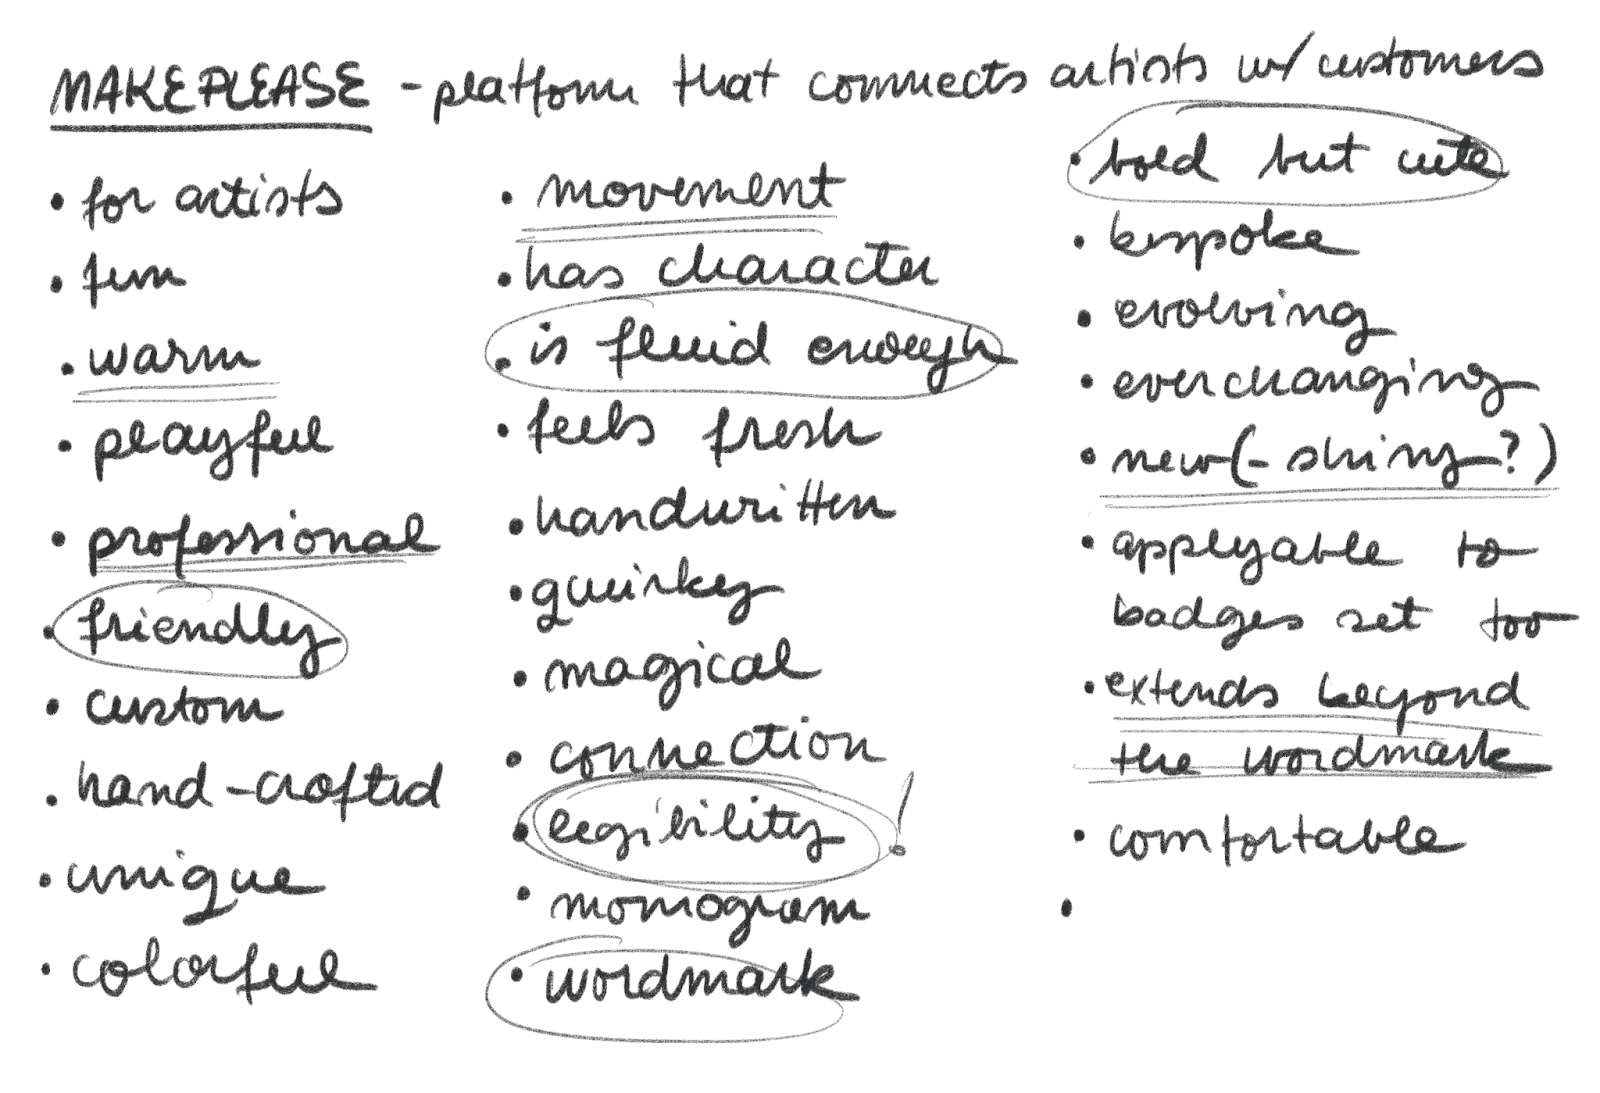 MAKEPLEASE - platform that connects artists w/ customers
• for artists
• fun
• warm
• playful
• professional
• friendly
• custom
• hand-crafted
• unique
• colorful
• movement
• has character
• is fluid enough
• feels fresh
• handwritten
• quirky
• magical
• connection
• legibility !
• monogram
• wordmark
• bold but cute
• bespoke
• evolving
• everchanging
• new (- shiny?)
• applyable to
badges set too
• extends beyond
the wordmark
• comfortable
•